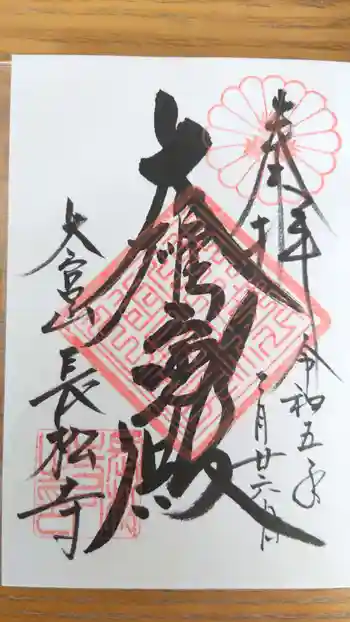 奉拝
令和五年
二月廿六日
大雄宝殿
大宮山
長松寺